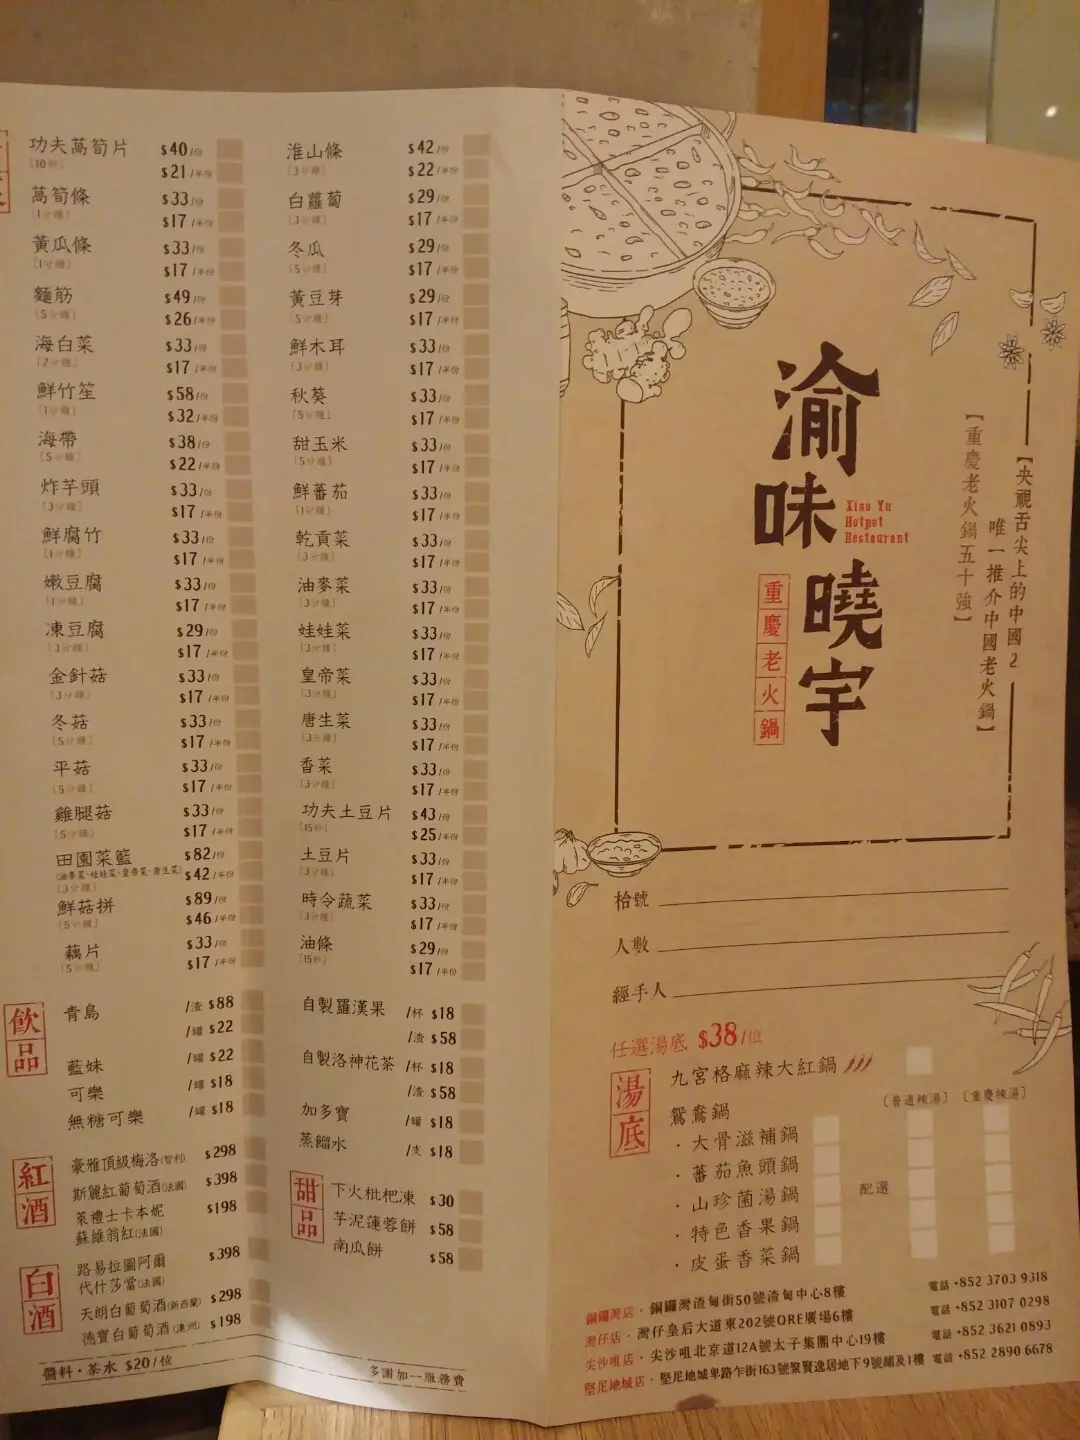 功夫萵筍片 $40/份
(10秒) $21/半份
萵筍條 $33/份
(1分鐘) $17/半份
黃瓜條 $33/份
(1分鐘) $17/半份
麵筋 $49/份
(5分鐘) $26/半份
海白菜 $33/份
(2分鐘) $17/半份
鮮竹笙 $58/份
(1分鐘) $32/半份
海帶 $38/份
(5分鐘) $22/半份
炸芋頭 $33/份
(3分鐘) $17/半份
鮮腐竹 $33/份
(1分鐘) $17/半份
嫩豆腐 $33/份
(1分鐘) $17/半份
凍豆腐 $29/份
(3分鐘) $17/半份
金針菇 $33/份
(3分鐘) $17/半份
冬菇 $33/份
(5分鐘) $17/半份
平菇 $33/份
(5分鐘) $17/半份
雞腿菇 $33/份
(5分鐘) $17/半份
田園菜籃 $82/份
(油麥菜、娃娃菜、皇帝菜、唐生菜) $42/半份
(3分鐘)
鮮菇拼 $89/份
(5分鐘) $46/半份
藕片 $33/份
(5分鐘) $17/半份
淮山條 $42/份
(3分鐘) $22/半份
白蘿蔔 $29/份
(3分鐘) $17/半份
冬瓜 $29/份
(5分鐘) $17/半份
黃豆芽 $29/份
(5分鐘) $17/半份
鮮木耳 $33/份
(3分鐘) $17/半份
秋葵 $33/份
(5分鐘) $17/半份
甜玉米 $33/份
(5分鐘) $17/半份
鮮蕃茄 $33/份
(1分鐘) $17/半份
乾貢菜 $33/份
(3分鐘) $17/半份
油麥菜 $33/份
(3分鐘) $17/半份
娃娃菜 $33/份
(3分鐘) $17/半份
皇帝菜 $33/份
(3分鐘) $17/半份
唐生菜 $33/份
(3分鐘) $17/半份
香菜 $33/份
(3分鐘) $17/半份
功夫土豆片 $43/份
(15秒) $25/半份
土豆片 $33/份
(3分鐘) $17/半份
時令蔬菜 $33/份
(3分鐘) $17/半份
油條 $29/份
(15秒) $17/半份
飲品
青島 /渣 $88
/罐 $22
藍妹 /罐 $22
可樂 /罐 $18
無糖可樂 /罐 $18
自製羅漢果 /杯 $18
/渣 $58
自製洛神花茶 /杯 $18
/渣 $58
加多寶 /罐 $18
蒸餾水 /支 $18
紅酒
豪雅頂級梅洛(智利) $298
斯麗紅葡萄酒(法國) $398
萊禮士卡本妮 $198
蘇維翁紅(法國)
白酒
路易拉圖阿爾 $398
代什莎當(法國)
天朗白葡萄酒(新西蘭) $298
德寶白葡萄酒(澳洲) $198
甜品
下火枇杷凍 $30
芋泥蓮蓉餅 $58
南瓜餅 $58
醬料·茶水 $20/位 多謝加一服務費
渝味曉宇
Xiao Yu
Hotpot
Restaurant
重慶老火鍋
【央視舌尖上的中國2
唯一推介中國老火鍋】
【重慶老火鍋五十強】
枱號
人數
經手人
任選湯底 $38/位
湯底
九宮格麻辣大紅鍋
鴛鴦鍋 〔普通辣湯〕 〔重慶辣湯〕
·大骨滋補鍋
·蕃茄魚頭鍋
·山珍菌湯鍋 配選
·特色香果鍋
·皮蛋香菜鍋
銅鑼灣店·銅鑼灣渣甸街50號渣甸中心8樓 電話 +852 3703 9318
灣仔店·灣仔皇后大道東202號QRE廣場6樓 電話 +852 3107 0298
尖沙咀店·尖沙咀北京道12A號太子集團中心19樓 電話 +852 3621 0893
堅尼地城店·堅尼地城卑路乍街163號聚賢逸居地下9號舖及1樓 電話 +852 2890 6678